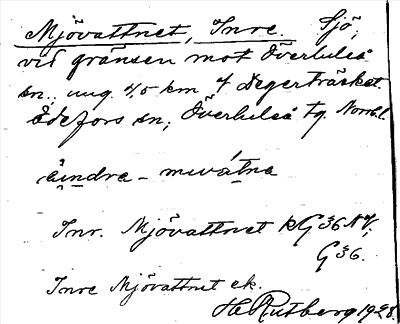 Mjövattnet, Inre. Sjö,
vid gränsen mot Överluleå
sn., ung. 4,5 km V Degerträsket.
Edefors sn, Överluleå tg. Norrb. l.
ìndra - mıvátna
Inr. Mjövattnet kG36 NV;
G36.
Inre Mjövattnet ek.
H Rutberg 1928.